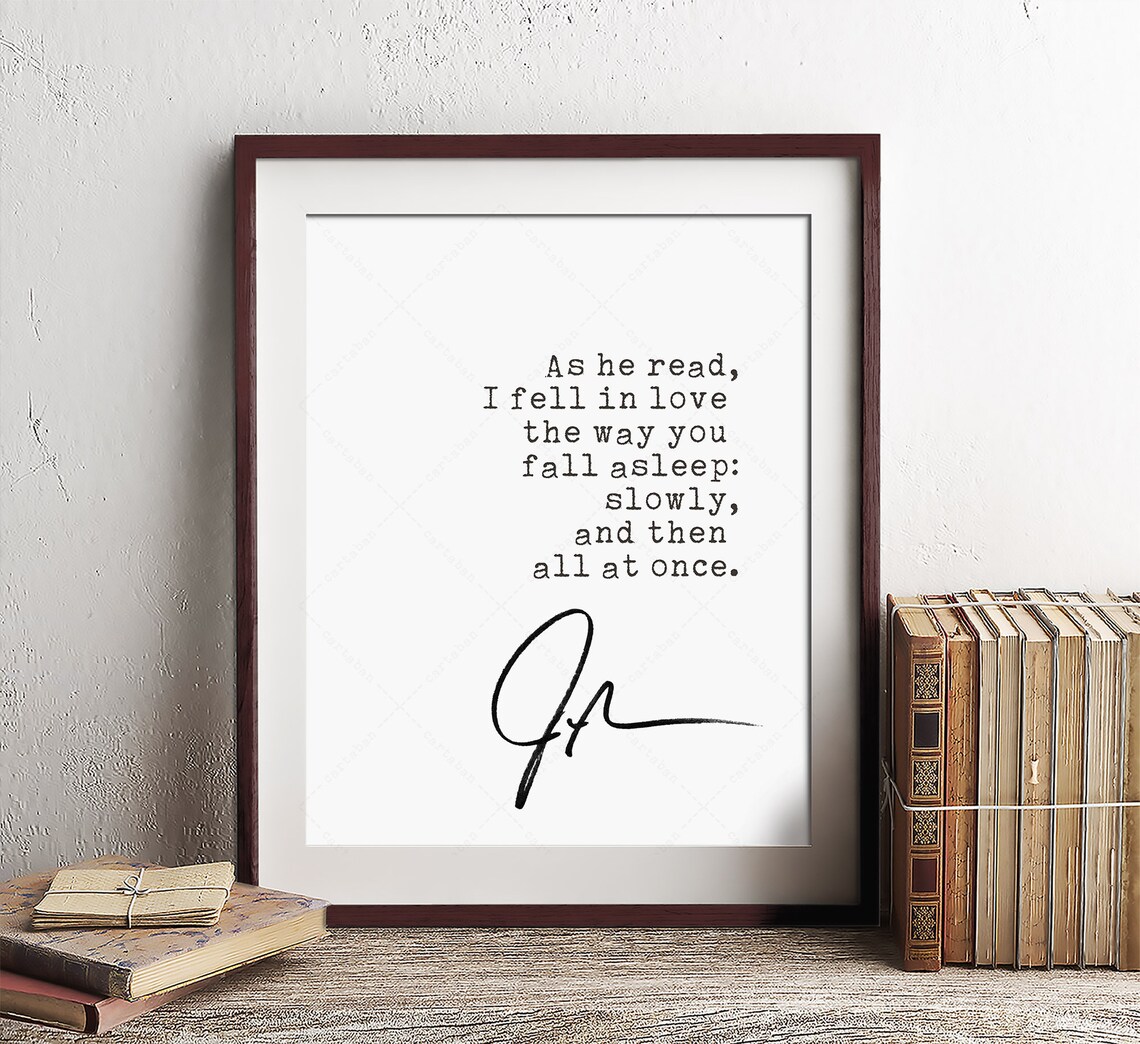 As he read,
I fell in love
the way you
fall asleep:
slowly,
and then
all at once.